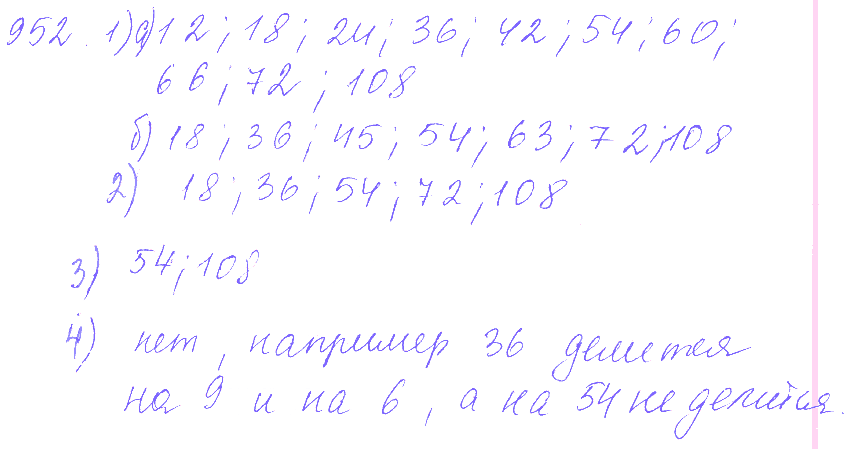 952. 1) а) 12; 18; 24; 36; 42; 54; 60;
66; 72; 108
б) 18; 36; 45; 54; 63; 72; 108
2) 18; 36; 54; 72; 108
3) 54; 108
4) нет, например 36 делится
на 9 и на 6, а на 54 не делится.